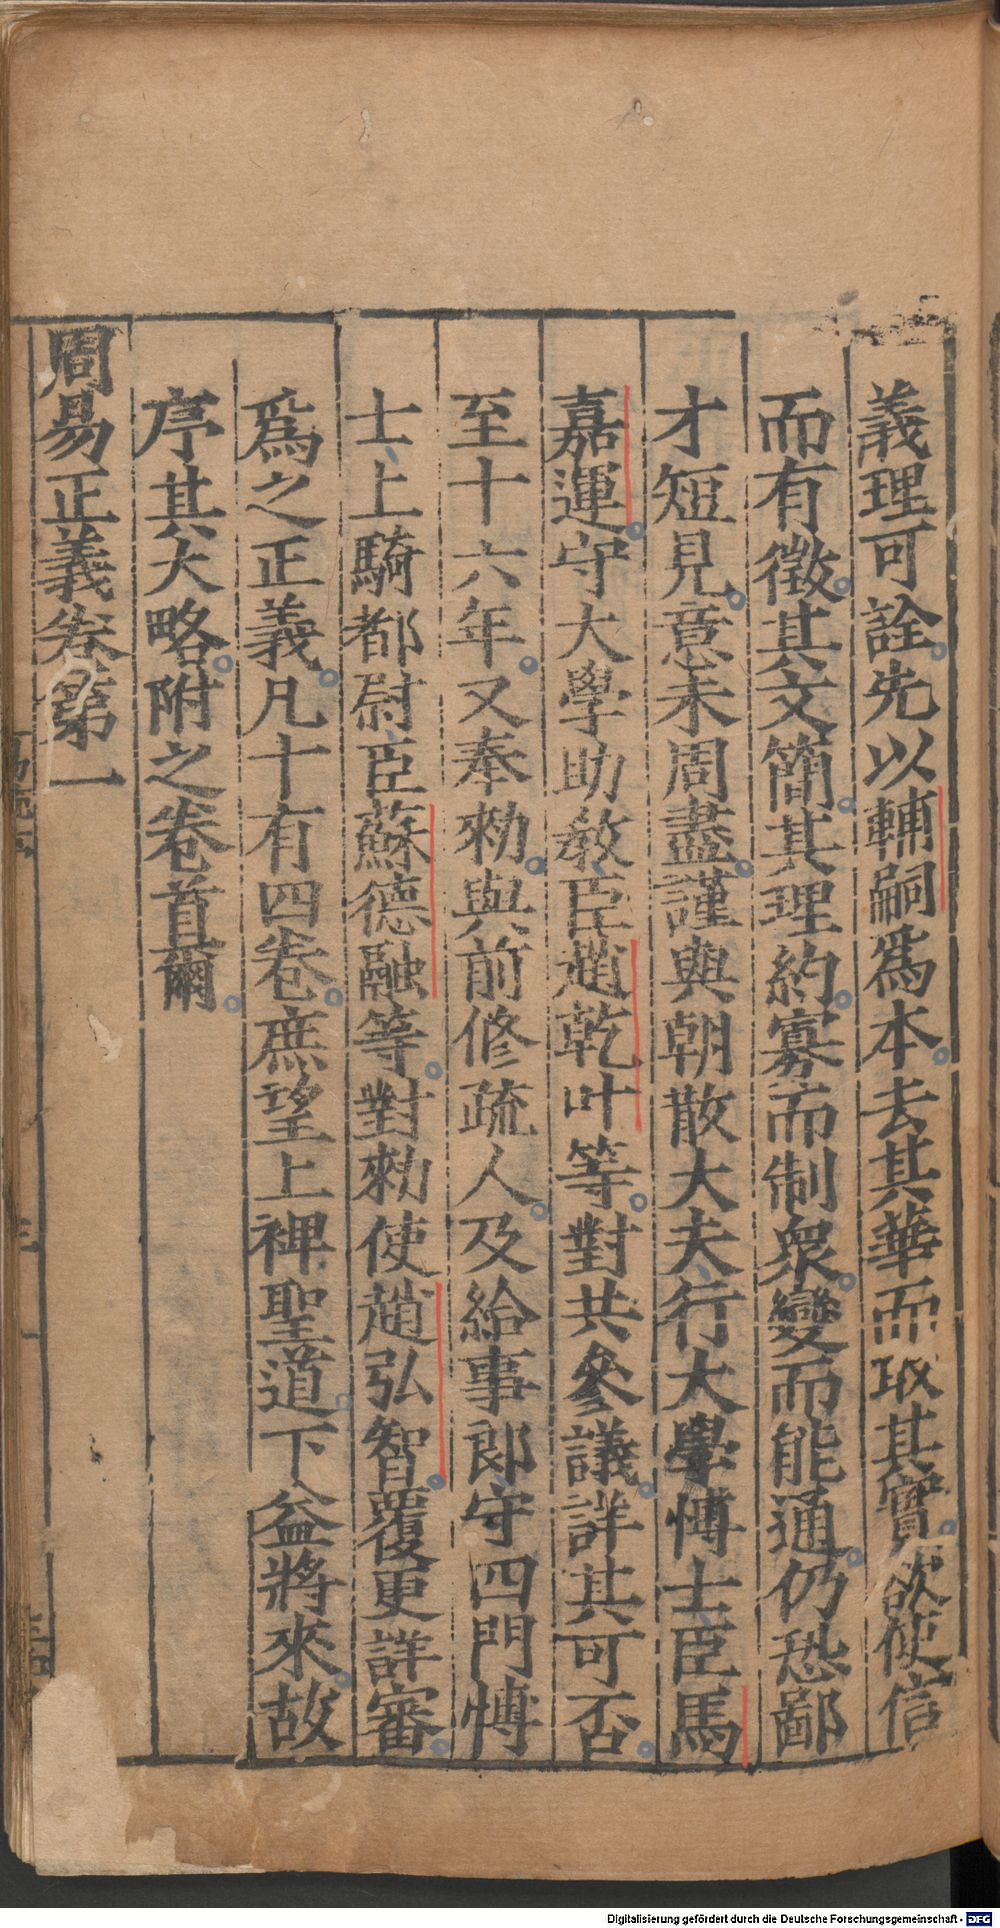 義理可詮先以輔嗣爲本去其華而取其實欲使信
而有徵其文簡其理約寡而制衆變而能通仍恐鄙
才短見意未周盡謹與朝散大夫行大學愽士臣馬
嘉運守大學助教臣趙乾叶等對共參議詳其可否
至十六年又奉勑與前修疏人及給事郎守四門愽
士上騎都尉臣蘇德融等對勑使趙弘智覆更詳審
爲之正義凡十有四卷庶望上裨聖道下益將來故
序其大略附之卷首爾
周易正義卷第一
Digitalisierung gefördert durch die Deutsche Forschungsgemeinschaft - DFG